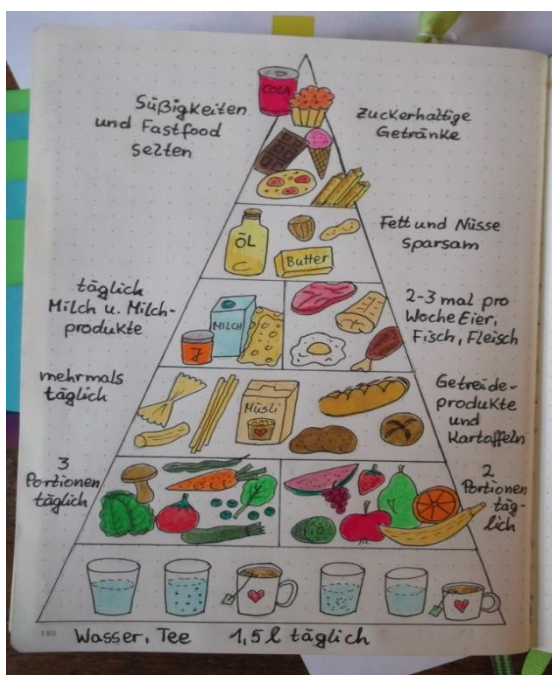 COLA
Süßigkeiten
und Fastfood
selten
zuckerhaltige
Getränke
ÖL
Butter
Fett und Nüsse
sparsam
täglich
Milch u. Milch-
produkte
MILCH
2-3 mal pro
Woche Eier,
Fisch, Fleisch
mehrmals
täglich
Müsli
Getreide-
produkte
und
Kartoffeln
3
Portionen
täglich
2
Portionen
täg-
lich
Wasser, Tee 1,5 l täglich